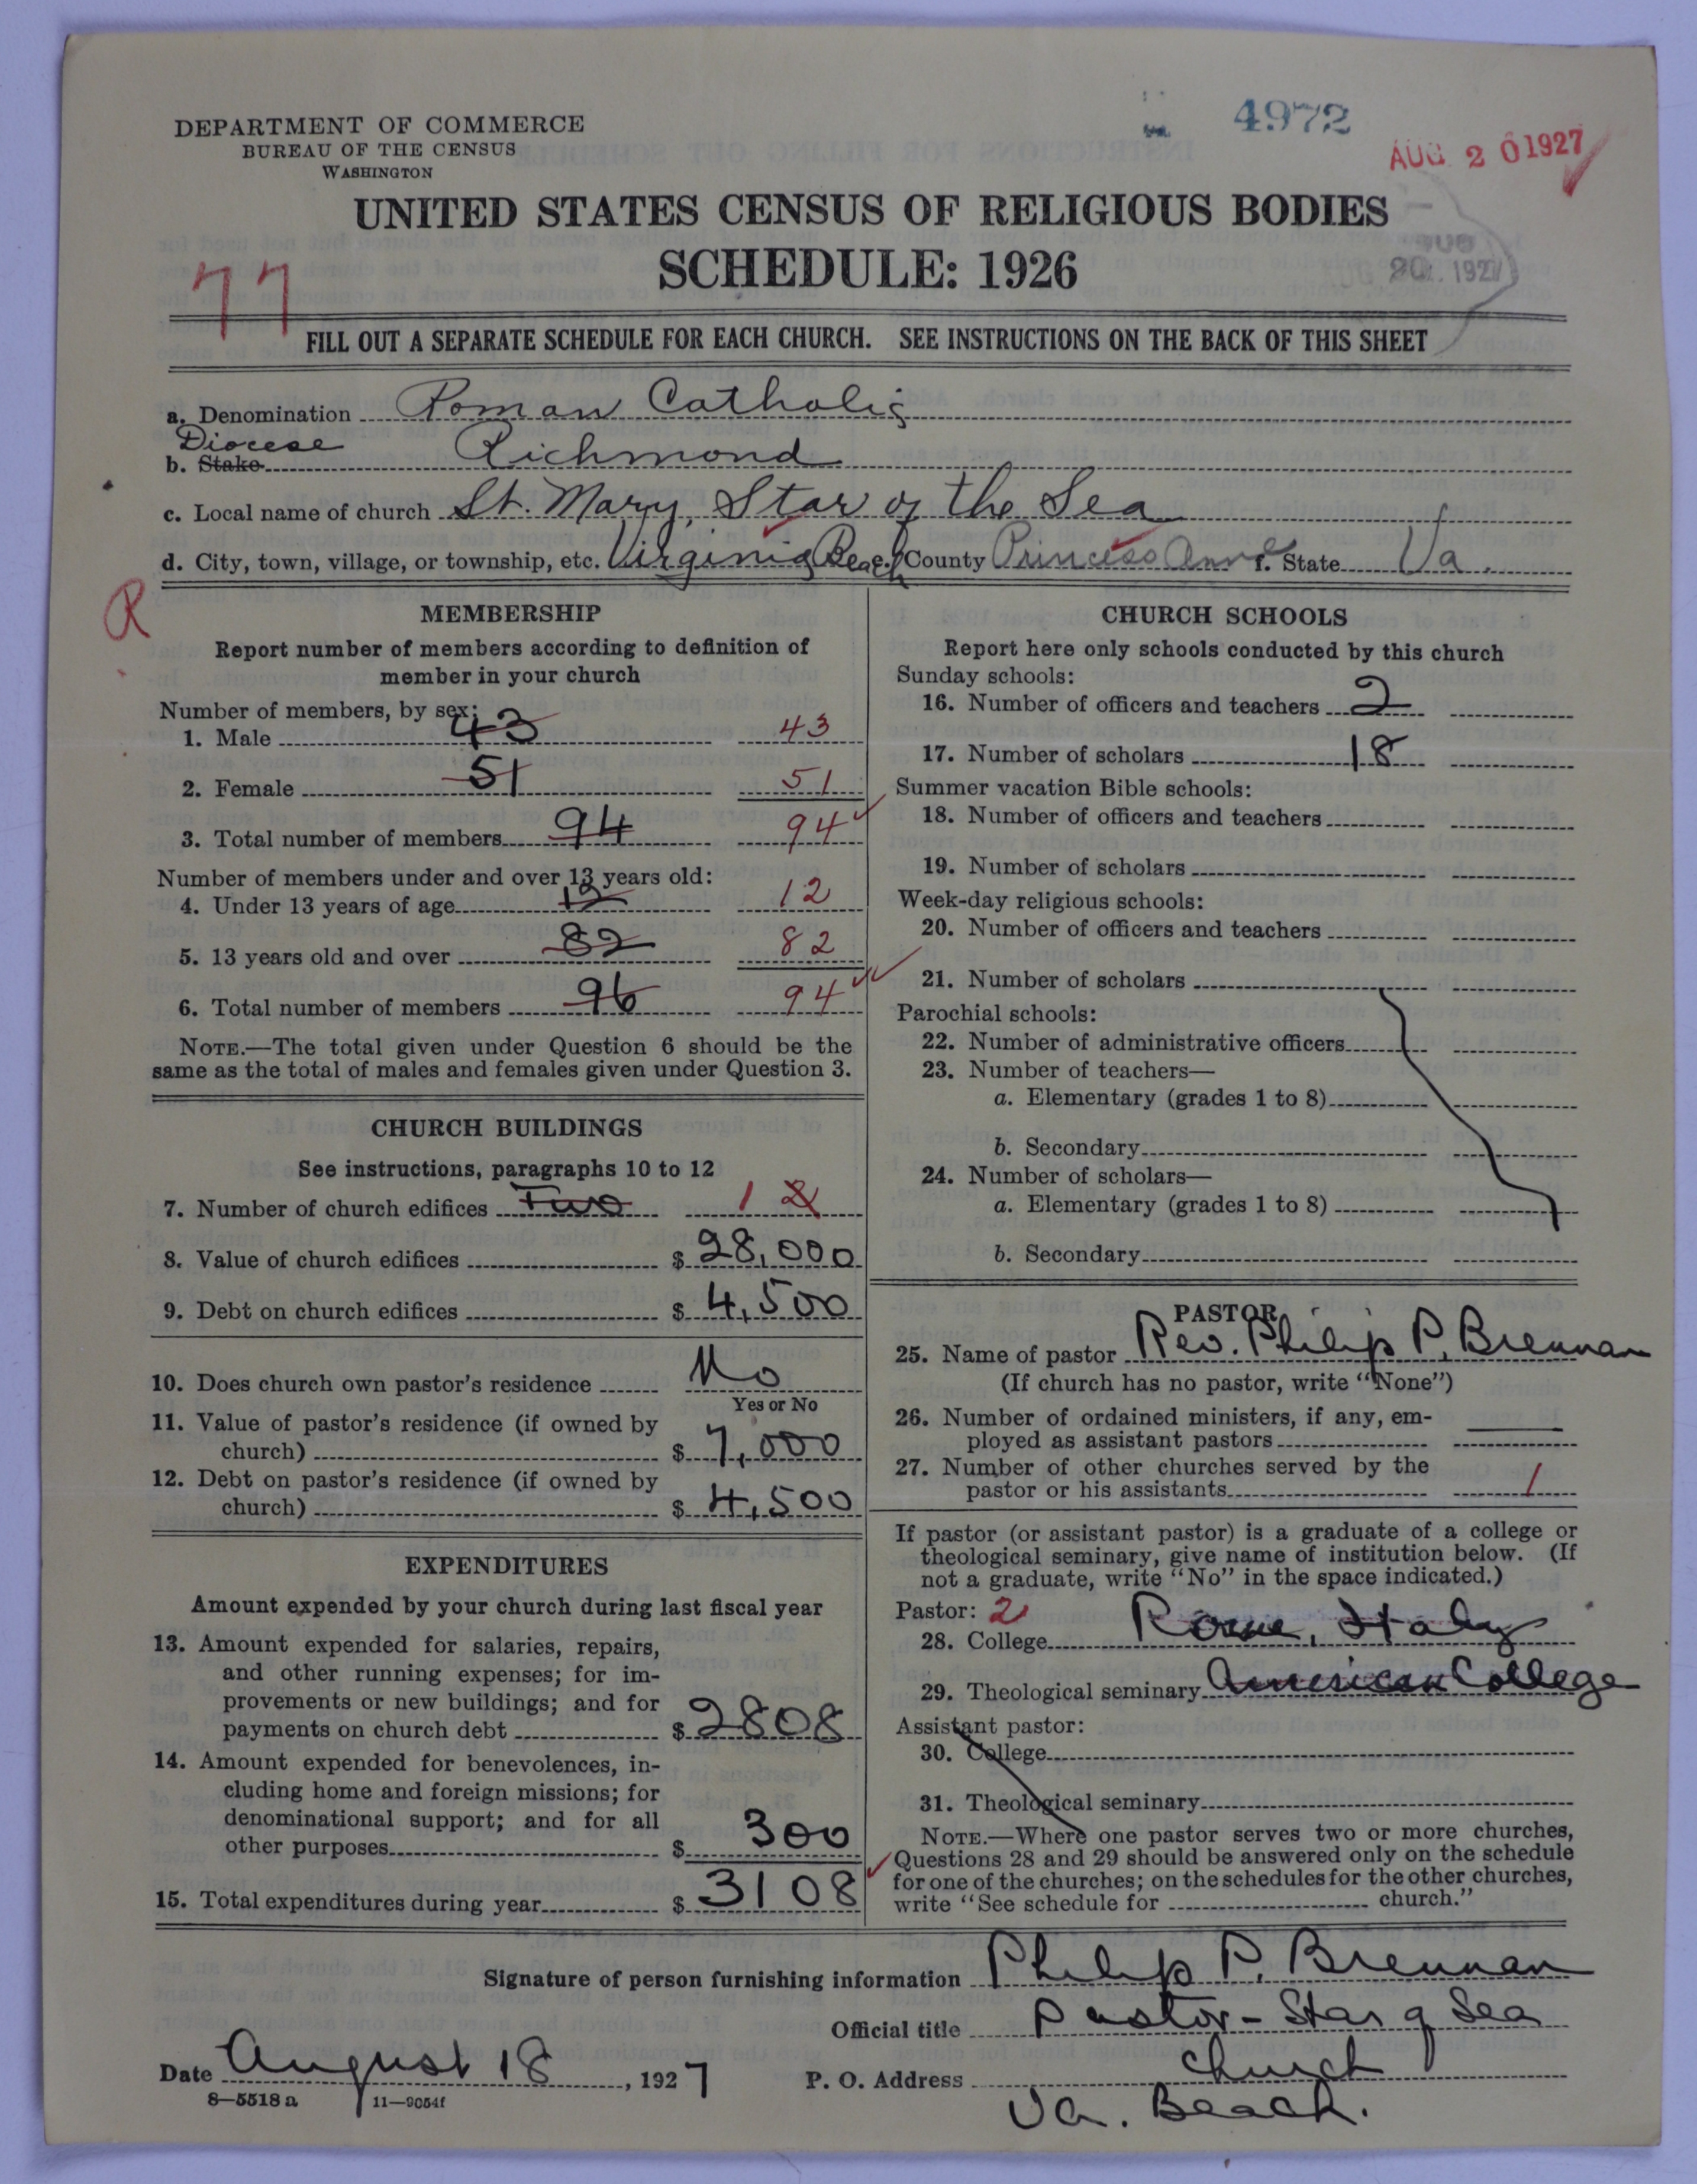 4972
AUG 20 1927
DEPARTMENT OF COMMERCE
BUREAU OF THE CENSUS
WASHINGTON
UNITED STATES CENSUS OF RELIGIOUS BODIES
SCHEDULE: 1926
AUG 20 1927
77
FILL OUT A SEPARATE SCHEDULE FOR EACH CHURCH. SEE INSTRUCTIONS ON THE BACK OF THIS SHEET
a. Denomination Roman Catholic
Diocese
b. Stake Richmond
c. Local name of church St. Mary, Star of the Sea
d. City, town, village, or township, etc. Virginia Beach e. County Princess Anne f. State Va.
R
MEMBERSHIP
Report number of members according to definition of
member in your church
Number of members, by sex:
1. Male 43 43
2. Female 51 51
3. Total number of members 94 94
Number of members under and over 13 years old:
4. Under 13 years of age 12 12
5. 13 years old and over 82 82
6. Total number of members 96 94
NOTE.—The total given under Question 6 should be the
same as the total of males and females given under Question 3.
CHURCH BUILDINGS
See instructions, paragraphs 10 to 12
7. Number of church edifices Two 1 2
8. Value of church edifices $ 28,000
9. Debt on church edifices $ 4,500
10. Does church own pastor's residence No
Yes or No
11. Value of pastor's residence (if owned by
church) $ 7,000
12. Debt on pastor's residence (if owned by
church) $ 4,500
EXPENDITURES
Amount expended by your church during last fiscal year
13. Amount expended for salaries, repairs,
and other running expenses; for im-
provements or new buildings; and for
payments on church debt $ 2808
14. Amount expended for benevolences, in-
cluding home and foreign missions; for
denominational support; and for all
other purposes $ 300
15. Total expenditures during year $ 3108
CHURCH SCHOOLS
Report here only schools conducted by this church
Sunday schools:
16. Number of officers and teachers 2
17. Number of scholars 18
Summer vacation Bible schools:
18. Number of officers and teachers
19. Number of scholars
Week-day religious schools:
20. Number of officers and teachers
21. Number of scholars
Parochial schools:
22. Number of administrative officers
23. Number of teachers—
a. Elementary (grades 1 to 8)
b. Secondary
24. Number of scholars—
a. Elementary (grades 1 to 8)
b. Secondary
PASTOR
25. Name of pastor Rev. Philip P. Brennan
(If church has no pastor, write "None")
26. Number of ordained ministers, if any, em-
ployed as assistant pastors
27. Number of other churches served by the
pastor or his assistants 1
If pastor (or assistant pastor) is a graduate of a college or
theological seminary, give name of institution below. (If
not a graduate, write "No" in the space indicated.)
Pastor: 2
28. College Rome, Italy
29. Theological seminary American College
Assistant pastor:
30. College
31. Theological seminary
NOTE.—Where one pastor serves two or more churches,
Questions 28 and 29 should be answered only on the schedule
for one of the churches; on the schedules for the other churches,
write "See schedule for church."
Signature of person furnishing information Philip P. Brennan
Official title Pastor - Star of Sea
Date August 18, 1927 P. O. Address Church
8—5518 a 11—9054f
Va. Beach.